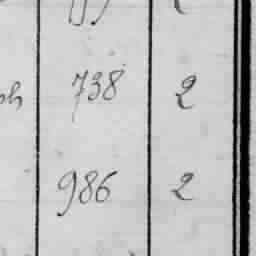 738 2
986 2